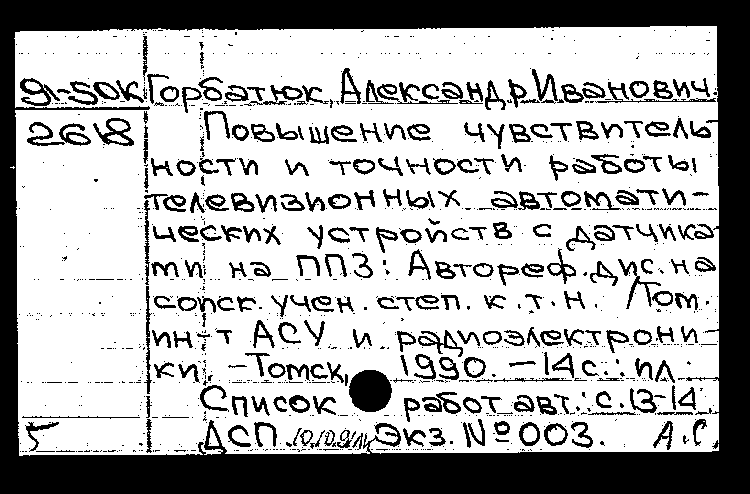 91-50К Горбатюк, Александр Иванович.
2618 Повышение чувствитель-
ности и точности работы
телевизионных автомати-
ческих устройств с датчика-
ми на ППЗ: Автореф. дис. на
соиск. учен. степ. к.т.н. /Том.
ин-т АСУ и радиоэлектрони-
ки. – Томск, 1990. – 14 с.: ил.
Список работ авт.: с. 13-14.
5 ДСП. Экз. № 003. А.С.